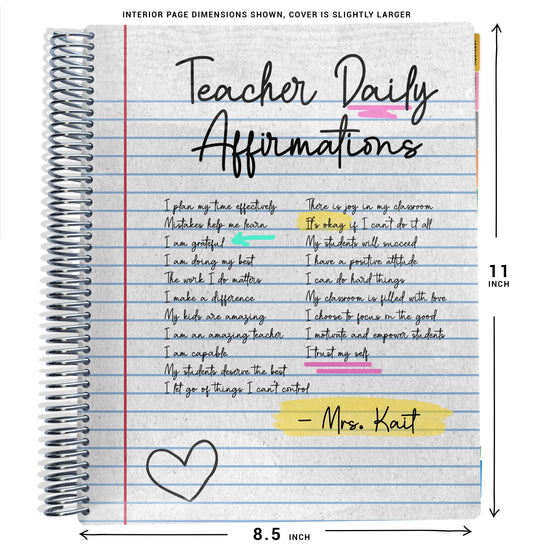 INTERIOR PAGE DIMENSIONS SHOWN, COVER IS SLIGHTLY LARGER
Teacher Daily
Affirmations
I plan my time effectively
Mistakes help me learn
I am grateful
I am doing my best
The work I do matters
I make a difference
My kids are amazing
I am an amazing teacher
I am capable
My students deserve the best
I let go of things I can't control
There is joy in my classroom
It's okay if I can't do it all
My students will succeed
I have a positive attitude
I can do hard things
My classroom is filled with love
I choose to focus on the good
I motivate and empower students
I trust my self
- Mrs. Kait
11
INCH
8.5 INCH